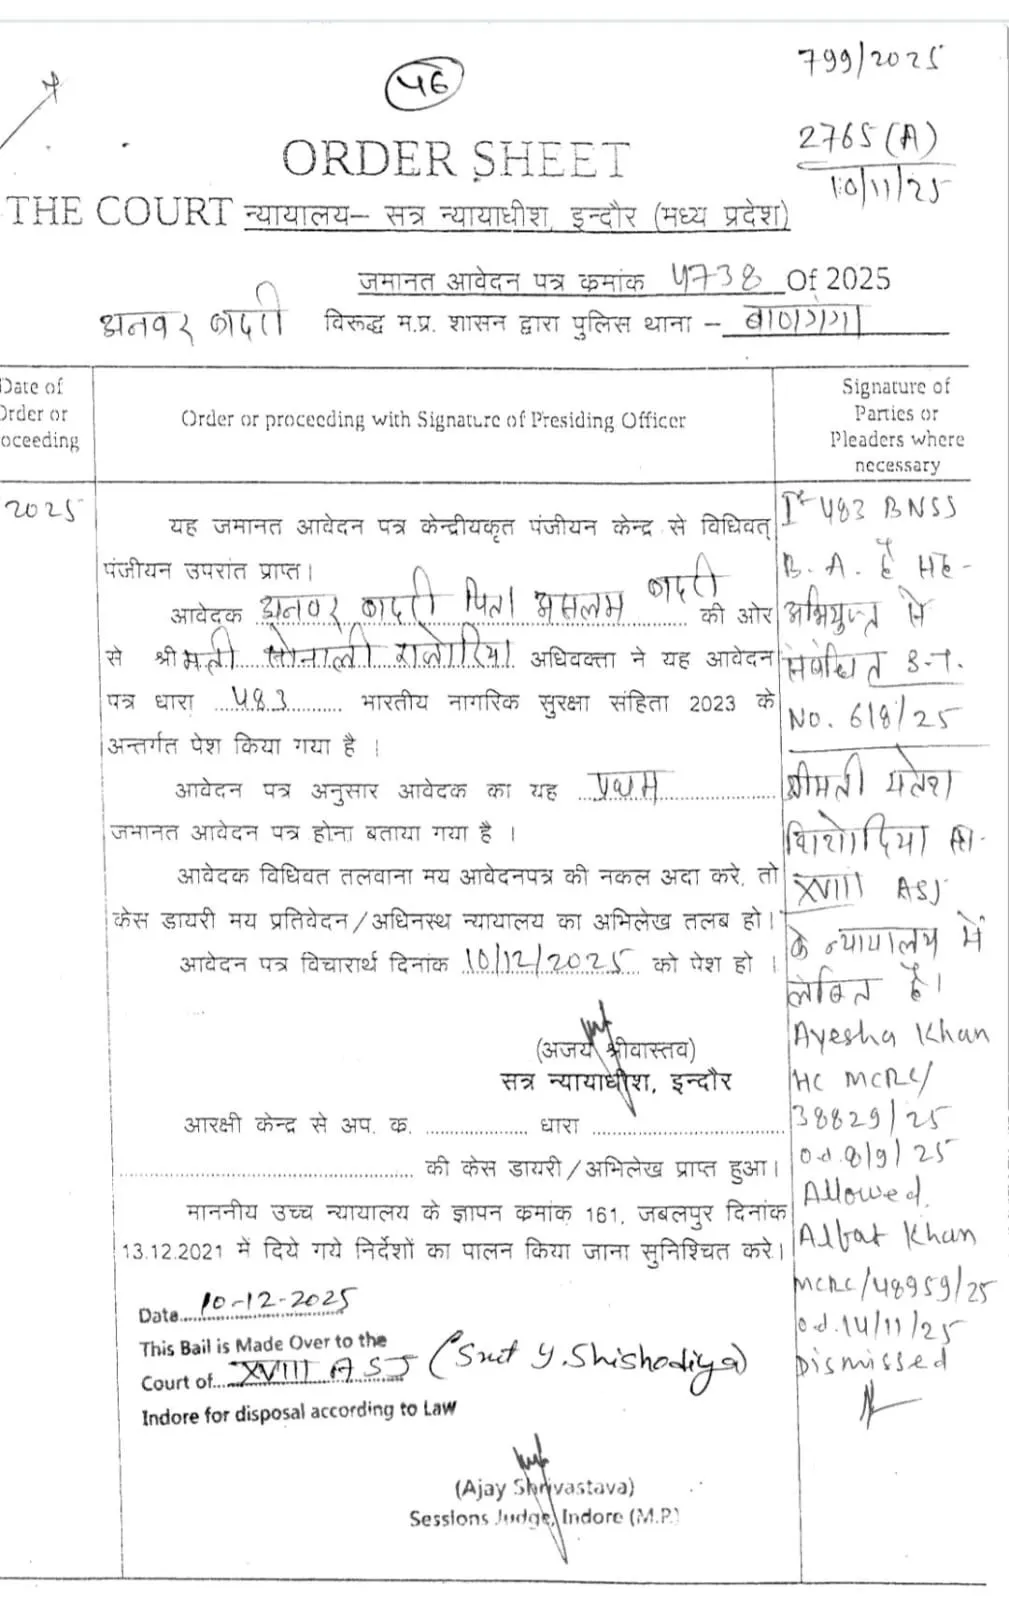 799/2025
46
2765(A)
10/11/25
ORDER SHEET
THE COURT न्यायालय– सत्र न्यायाधीश, इन्दौर (मध्य प्रदेश)
जमानत आवेदन पत्र कमांक 4738 Of 2025
अनवर कादरी विरूद्ध म.प्र. शासन द्वारा पुलिस थाना – बाणगंगा
Date of
Order or
oceeding
Order or proceeding with Signature of Presiding Officer
Signature of
Parties or
Pleaders where
necessary
2025
यह जमानत आवेदन पत्र केन्द्रीयकृत पंजीयन केन्द्र से विधिवत्
पंजीयन उपरांत प्राप्त।
आवेदक अनवर कादरी पिता असलम कादरी की ओर
से श्रीमती सोनाली राजोरिया अधिवक्ता ने यह आवेदन
पत्र धारा 483 भारतीय नागरिक सुरक्षा संहिता 2023 के
अन्तर्गत पेश किया गया है ।
आवेदन पत्र अनुसार आवेदक का यह प्रथम
जमानत आवेदन पत्र होना बताया गया है ।
आवेदक विधिवत तलवाना मय आवेदनपत्र की नकल अदा करे, तो
केस डायरी मय प्रतिवेदन/अधिनस्थ न्यायालय का अभिलेख तलब हो।
आवेदन पत्र विचारार्थ दिनांक 10/12/2025 को पेश हो ।
(अजय श्रीवास्तव)
सत्र न्यायाधीश, इन्दौर
आरक्षी केन्द्र से अप. क. .................... धारा ..............................
.............................................. की केस डायरी/अभिलेख प्राप्त हुआ।
माननीय उच्च न्यायालय के ज्ञापन कमांक 161, जबलपुर दिनांक
13.12.2021 में दिये गये निर्देशों का पालन किया जाना सुनिश्चित करे।
Date 10-12-2025
This Bail is Made Over to the
Court of XVIII ASJ (Smt Y. Shishodiya)
Indore for disposal according to Law
(Ajay Shrivastava)
Sessions Judge, Indore (M.P.)
Ist 483 BNSS
B. A. है सह-
अभियुक्त से
संबंधित S.T.
No. 618/25
श्रीमती यतेश
शिशोदिया
XVIII ASJ
के न्यायालय में
लंबित है।
Ayesha Khan
HC MCRC/
38829/25
o.d. 8/9/25
Allowed.
Albat Khan
MCRC/48959/25
o.d. 14/11/25
Dismissed